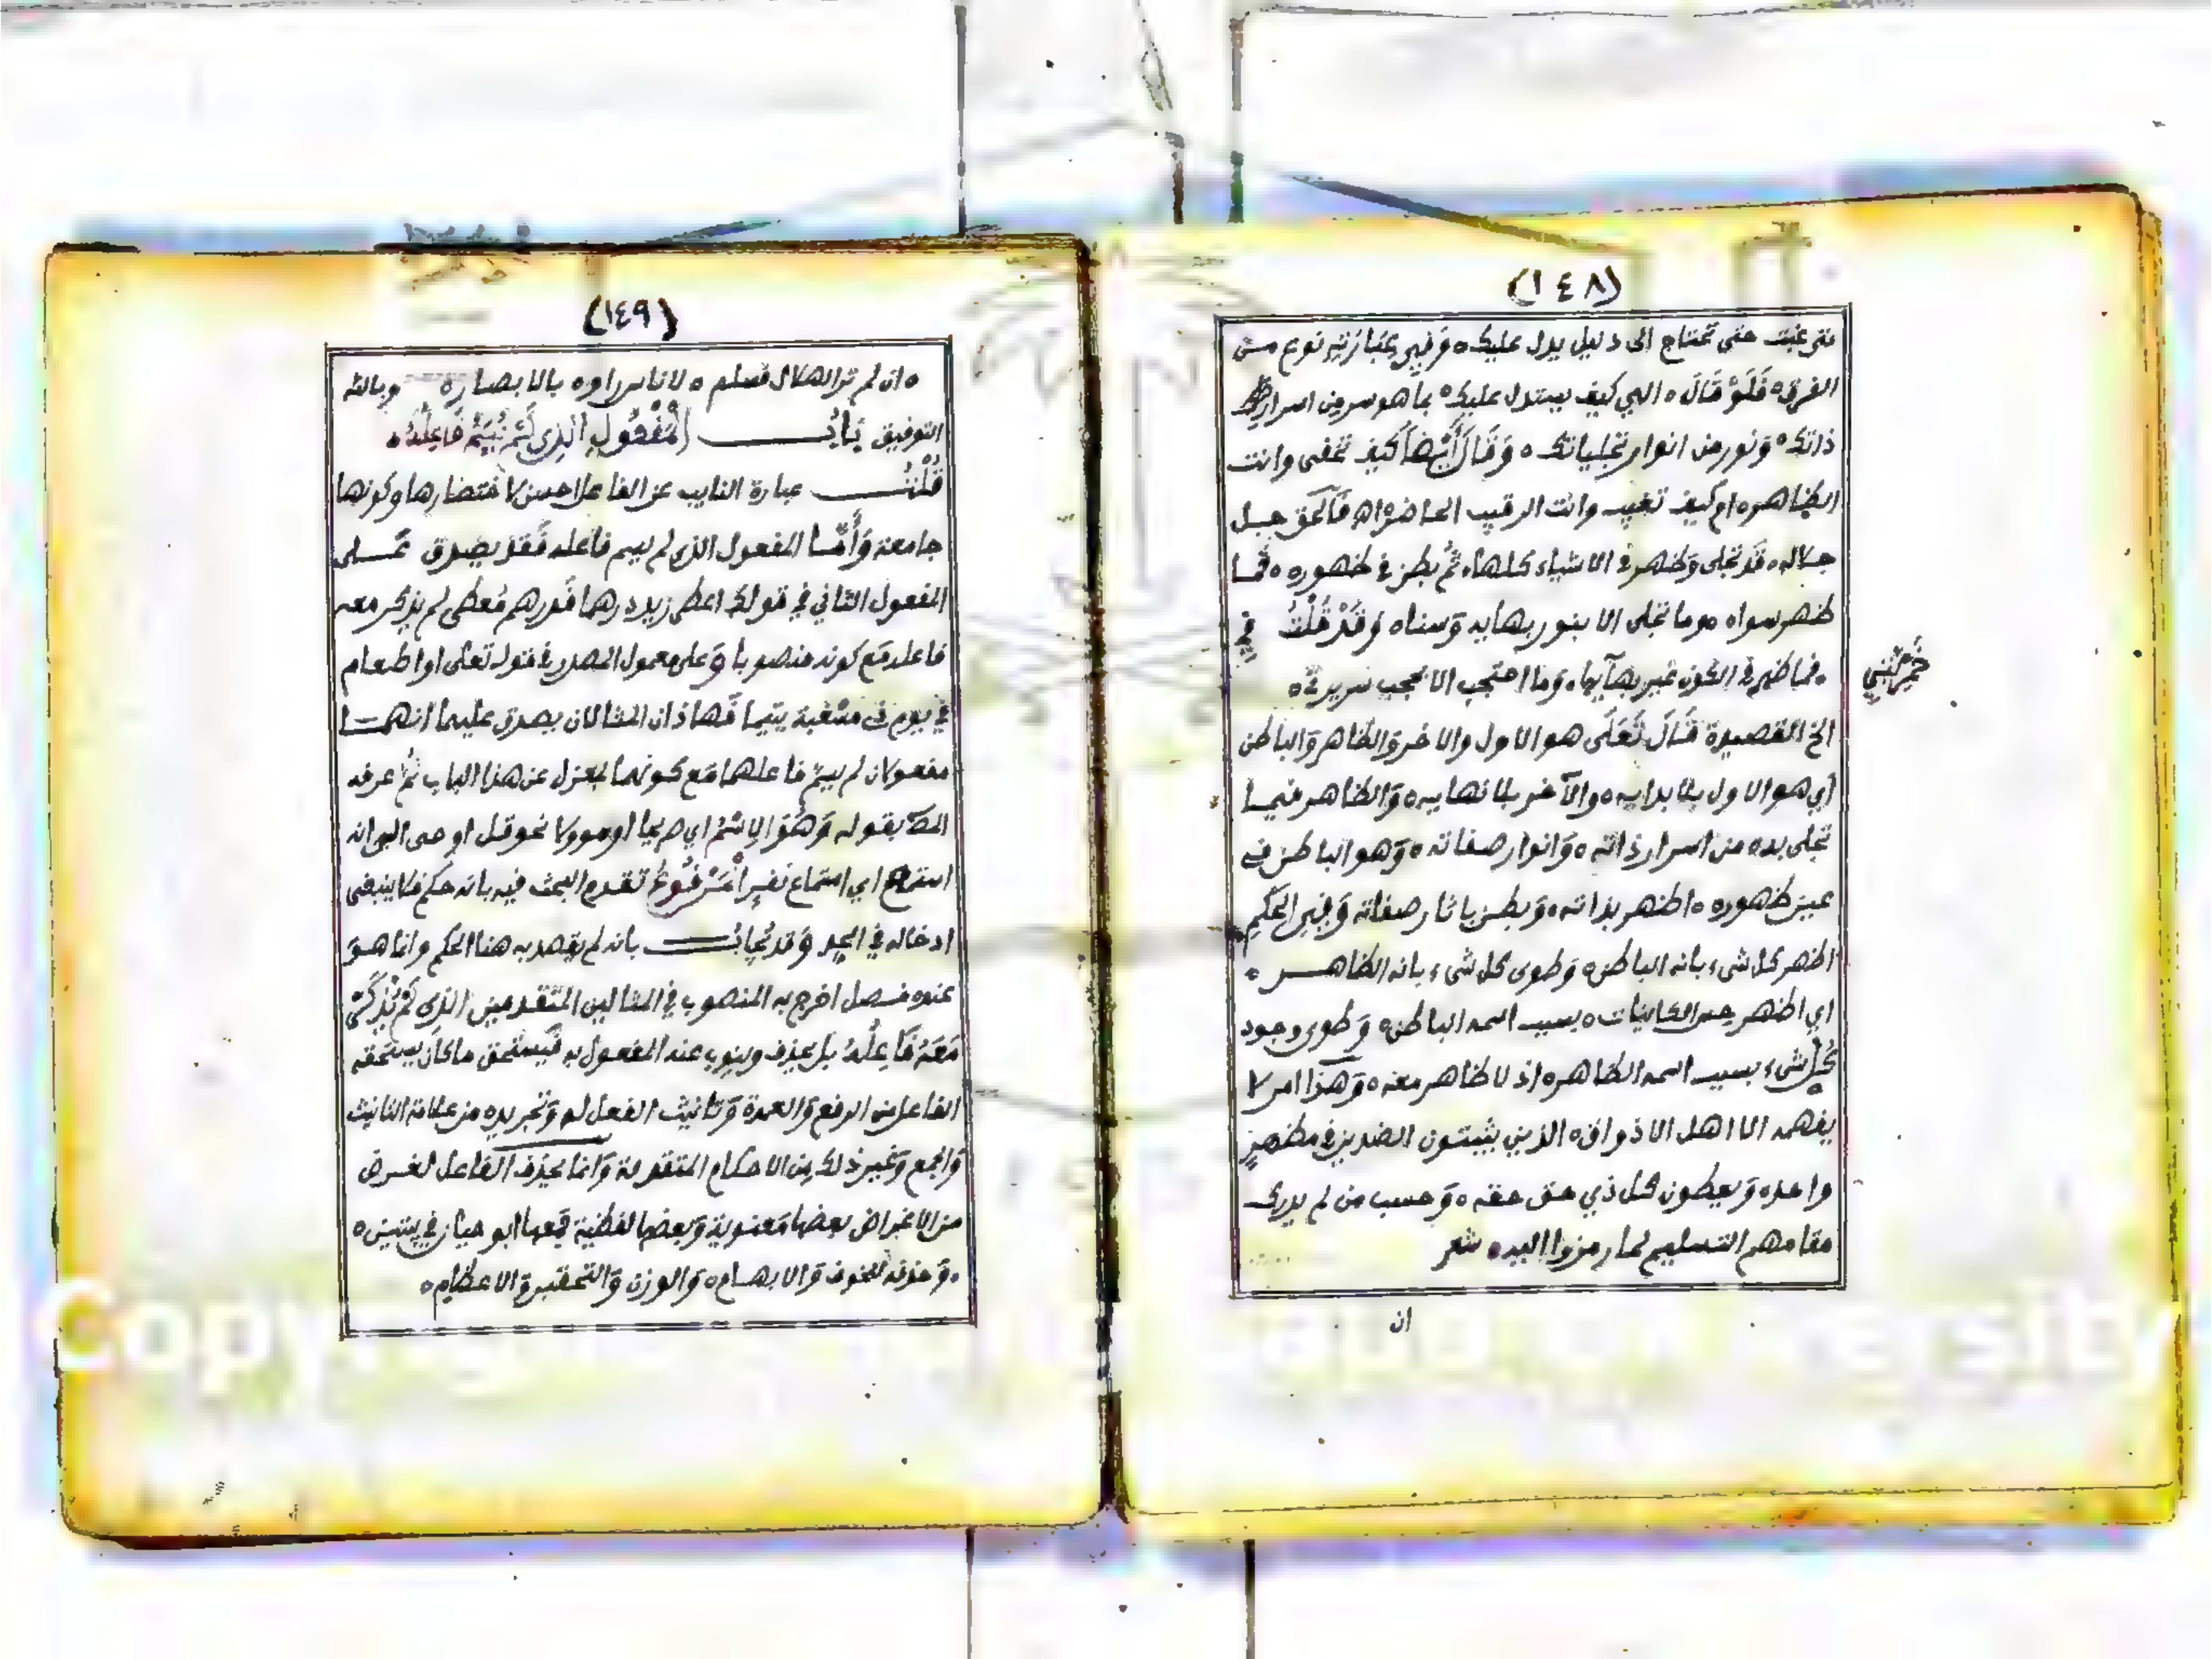 (١٤٨)
متى غبت حتى تحتاج الى دليل يدل عليك ٥ وَفِي عِبَارَتِهِ نوع من
الفرق ٥ فَلَوْ قَالَ ٥ الهي كيف يستدل عليك ٥ بما هو سر من اسرار
ذاتك ٥ وَنور من انوار تجلياتك ٥ وَقَالَ أَيْضًا كيف تخفى وانت
الظاهر ٥ ام كيف تغيب وانت الرقيب الحاضر اه فَالحق جل
جلاله ٥ قَد تجلى وَظهر في الاشياء كلها ٥ ثُمَّ بطن في ظهوره ٥ فَما
ظهر سواه ٥ وما تجلى الا بنور بهايه وَسناه ٥ وَقَدْ قُلْتُ في
خَمْرِيَّتِي
٥ فما ظهر في الكون غير بهآيها ٥ وَما احتجب الا بحجب سريرتي ٥
الخ القصيدة قَالَ تَعَلَى هو الاول والاخر وَالظاهر وَالباطن
أي هو الاول بلا بدايه ٥ والآخر بلا نهايه ٥ وَالظاهر فيما
تجلى به ٥ من اسرار ذاته ٥ وَانوار صفاته ٥ وَهو الباطن في
عين ظهوره ٥ اظهر بذاته ٥ وَبطن باثار صفاته وَفِي الحِكَمِ
اظهر كل شيء بانه الباطن ٥ وَطوى كل شيء بانه الظاهر ٥
اي اظهر حس الكاينات ٥ بسبب اسمه الباطن ٥ وَطوى وجود
كُلِّ شيء بسبب اسمه الظاهر ٥ اذ لا ظاهر معه ٥ وَهَذا امر لا
يفهمه الا اهل الاذواق ٥ الذين يثبتون الضدين في مظهرٍ
واحد ٥ وَيعطون كل ذي حق حقه ٥ وَحسب من لم يدرك
مقامهم التسليم لما رمزوا اليه ٥ شعر
ان
(١٤٩)
٥ ان لم تر الهلال فسلم ٥ لاناس راوه بالابصار ٥ وبالله
التوفيق بَابُ المَفْعُولِ الَّذِي لَمْ يُسَمَّ فَاعِلُهُ ٥
قُلْتُ عبارة النايب عن الفاعل احسن لاختصارها وكونها
جامعة وَأَمَّا المفعول الذي لم يسم فاعله فَقد يصدق عَلى
المفعول الثاني في قولك اعطى زيد درهما فَدرهم مُعطى لم يذكر معه
فاعله مَع كونه منصوبا وَعلى معمول المصدر في قوله تعلى او اطعام
في يوم ذى مسْغبة يتيما فَهاذان المثالان يصدق عليهما انهما
مفعولان لم يسمّ فاعلهما مَع كونهما بمعزل عن هذا الباب ثُمَّ عرفه
المصَ بقوله وَهُوَ الاِسْمُ اي صريحا او موولا نحو قل اوحى الي انه
استمع اي استماع نفر المَرْفُوعُ تقدم البحث فيه بانه حكم فَلا ينبغى
ادخاله في الحد وَقد يُجَابُ بانه لم يقصد به هنا الحكم وانما هوَ
عنده فصل اخرج به المنصوب في المثالين المتقدمين الذي لَمْ يُذْكَرْ
مَعَهُ فَاعِلُهُ بل يحذف وينوب عنه المفعول به فَيستحق ما كان يستحقه
الفاعل من الرفع وَالعمدة وَتانيث الفعل له وَتجريده من علامة التانيث
وَالجمع وَغير ذلك من الاحكام المتقدمة وَانما يحذف الفاعل لغرض
من الاغراض بعضها مَعنوية وَبعضها لفظية جَمعها ابو حيان في بيتين ٥
٥ وَحذفه للخوف وَالابهام ٥ وَالوزن وَالتحقير وَالاعظام ٥